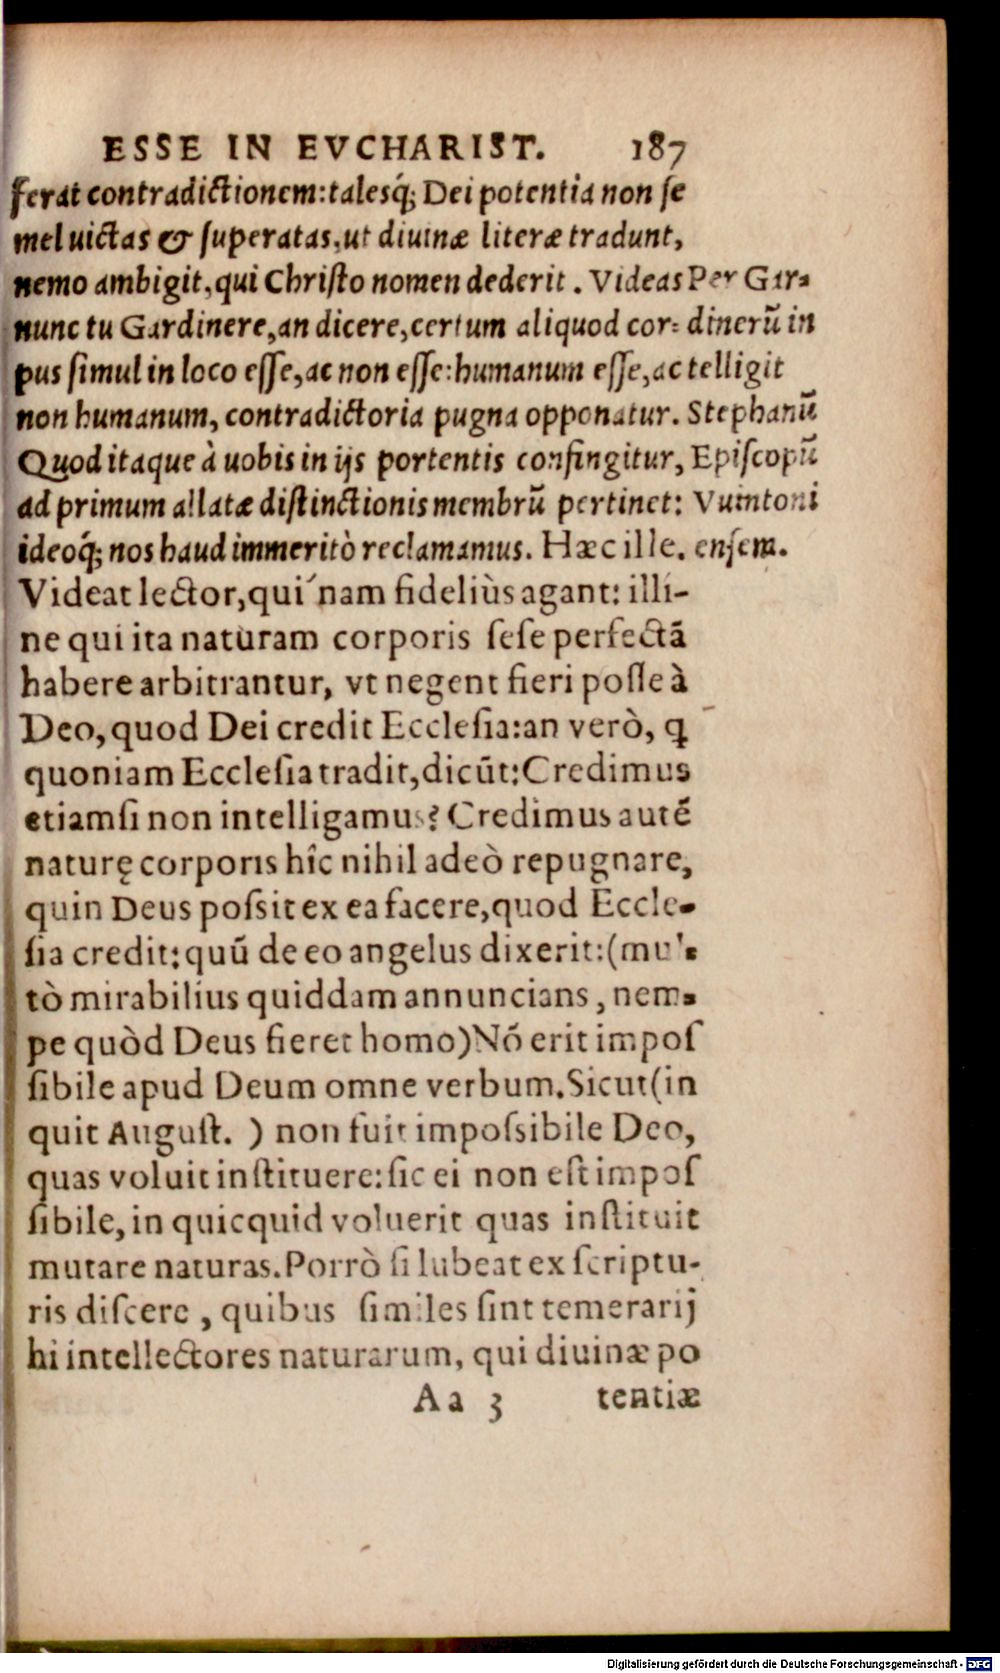 ESSE IN EVCHARIST. 187
ferat contradictionem: talesq́; Dei potentia non se
mel uictas & superatas, ut diuinæ literæ tradunt,
nemo ambigit, qui Christo nomen dederit. Videas
nunc tu Gardinere, an dicere, certum aliquod cor-
pus simul in loco esse, ac non esse: humanum esse, ac
non humanum, contradictoria pugna opponatur.
Quod itaque à uobis in ijs portentis confingitur,
ad primum allatæ distinctionis membrū pertinet:
ideoq́; nos haud immeritò reclamamus. Hæc ille.
Per Gar-
dinerū in
telligit
Stephanū
Episcopū
Vuintoni
ensem.
Videat lector, qui'nam fideliùs agant: illi-
ne qui ita naturam corporis sese perfectā
habere arbitrantur, vt negent fieri posse à
Deo, quod Dei credit Ecclesia: an verò, q̄
quoniam Ecclesia tradit, dicūt: Credimus
etiamsi non intelligamus? Credimus autē
naturę corporis hîc nihil adeò repugnare,
quin Deus possit ex ea facere, quod Eccle-
sia credit: quū de eo angelus dixerit: (mul-
tò mirabilius quiddam annuncians, nem-
pe quòd Deus fieret homo) Nō erit impos
sibile apud Deum omne verbum. Sicut (in
quit August. ) non fuit impossibile Deo,
quas voluit instituere: sic ei non est impos
sibile, in quicquid voluerit quas instituit
mutare naturas. Porrò si lubeat ex scriptu-
ris discere, quibus similes sint temerarij
hi intellectores naturarum, qui diuinæ po
Aa 3 tentiæ
Digitalisierung gefördert durch die Deutsche Forschungsgemeinschaft - DFG